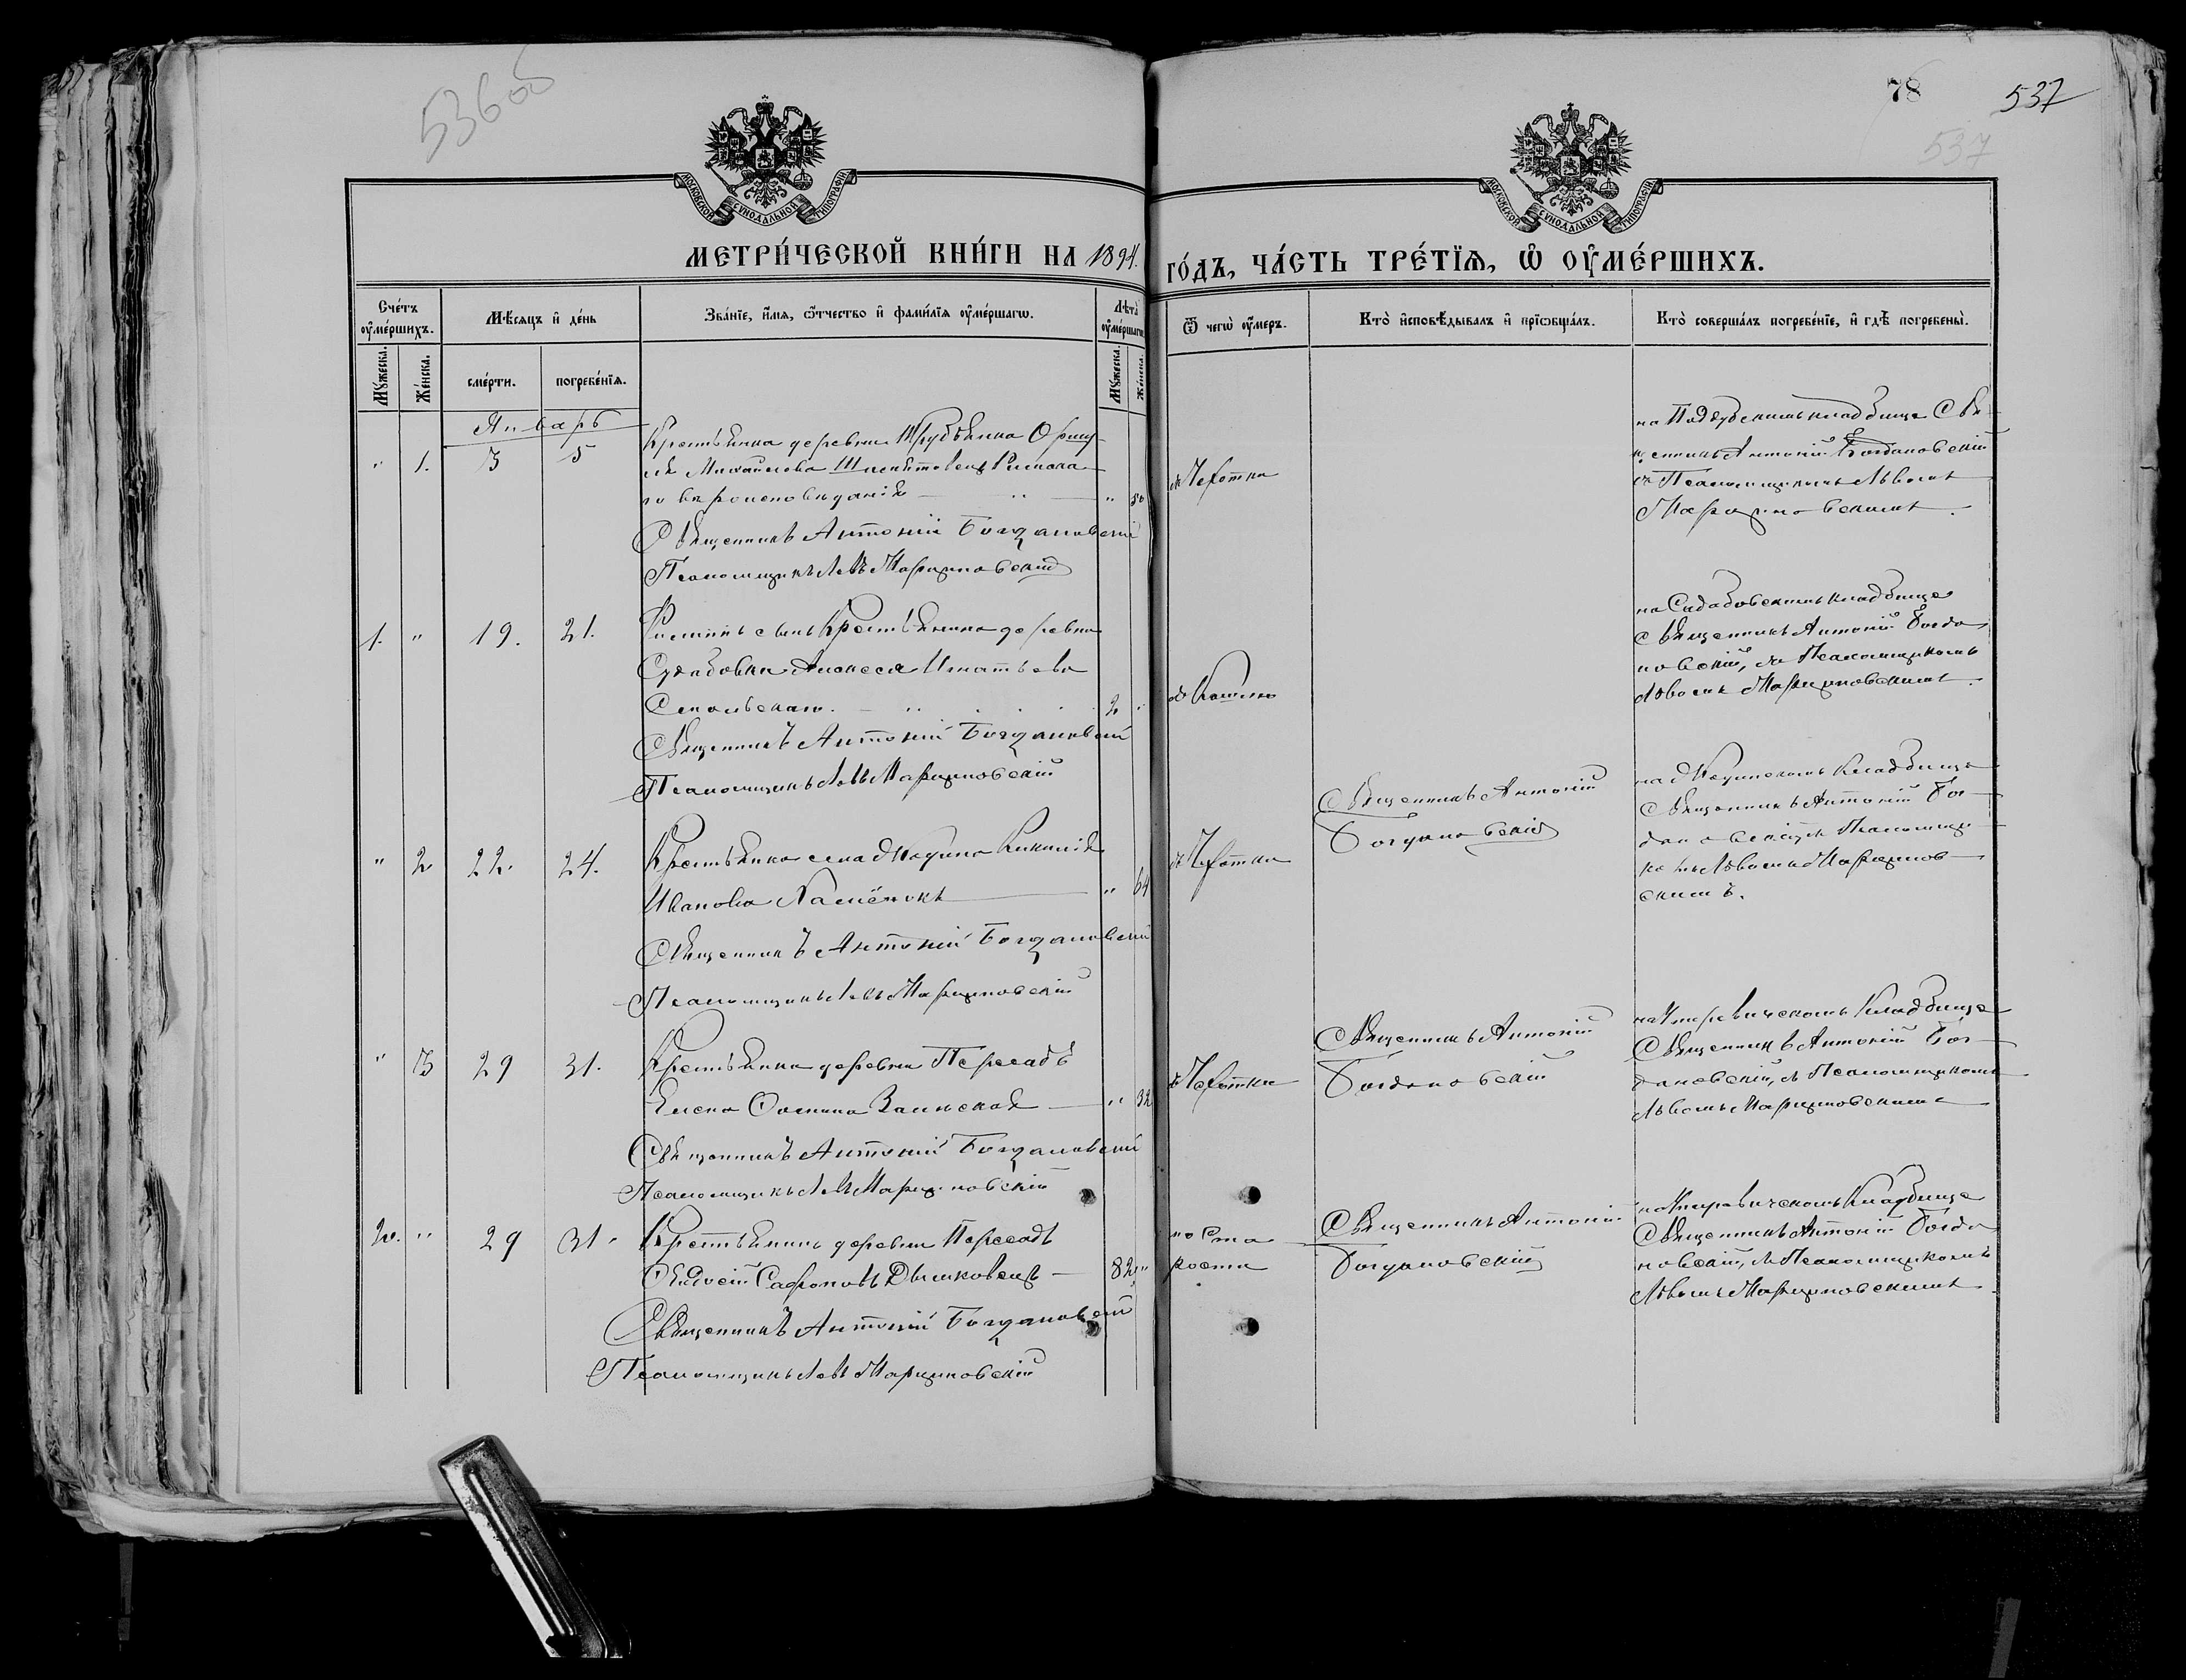 536 об
78
537
537
МОСКОВСКОЙ СѴНОДАЛЬНОЙ ТИПОГРАФІИ
МОСКОВСКОЙ СѴНОДАЛЬНОЙ ТИПОГРАФІИ
МЕТРИ́ЧЕСКОЙ КНИ́ГИ НА 1894.
ГО́ДЪ, ЧА́СТЬ ТРЕ́ТЇѦ, Ѡ҆ ОУ҆МЕ́РШИХЪ.
Сче́тъ оу҆ме́ршихъ.
Мѣ́сяцъ и҆ де́нь
Зва́нїе, и҆́мя, ѻ҆́тчество и҆ фами́лїя оу҆ме́ршагѡ.
Лѣта̀ оу҆ме́ршагѡ
Ѿ чегѡ̀ оу҆́меръ.
Кто̀ и҆сповѣ́дывалъ и҆ прїѡбща́лъ.
Кто̀ соверша́лъ погребе́нїе, и҆ гдѣ̀ погребены̀.
Мꙋ́жеска.
Же́нска.
сме́рти.
погребе́нїя.
Мꙋ́жеска.
Же́нска.
Январь
" 1. 3 5
Крестьянка деревни
Михайлова Римска
го вѣроисповѣданія — " — " 50
Священникъ Антоній Богдановскій
Псаломщикъ Левъ Марциновскій
Чахотки
кладбище Свя-
щенникъ Антоній Богдановскій
съ Псаломщикомъ Львомъ
Марциновскимъ.
1. " 19. 21.
сынъ Крестьянина деревни
Судабовки Алексея Игнатьева
2 "
Священникъ Антоній Богдановскій
Псаломщикъ Левъ Марциновскій
Кашлю
на кладбище
Священникъ Антоній Богда
новскій, съ Псаломщикомъ
Львомъ Марциновскимъ.
" 2 22. 24.
Крестьянка села
Иванова — " 64
Священникъ Антоній Богдановскій
Псаломщикъ Левъ Марциновскій
Чахотки
Священникъ Антоній
Богдановскій
на кладбище
Священникъ Антоній Бог-
дановскій съ Псаломщи-
комъ Львомъ Марцинов-
скимъ.
" 3 29 31.
Крестьянка деревни Пересадъ
Елена — " 32
Священникъ Антоній Богдановскій
Псаломщикъ Левъ Марциновскій
Чахотки
Священникъ Антоній
Богдановскій
на кладбище
Священникъ Антоній Бог-
дановскій, съ Псаломщикомъ
Львомъ Марциновскимъ
2. " 29 31.
Крестьянинъ деревни Пересадъ
Сафроновъ — 82 "
Священникъ Антоній Богдановскій
Псаломщикъ Левъ Марциновскій
по Ста
рости
Священникъ Антоній
Богдановскій
на кладбище
Священникъ Антоній Богда
новскій, съ Псаломщикомъ
Львомъ Марциновскимъ.